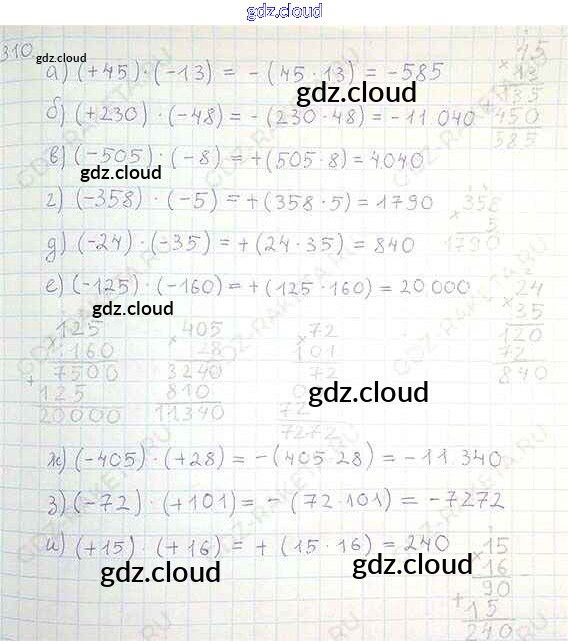 gdz.cloud
gdz.cloud
310
gdz.cloud
а) (+45) · (-13) = -(45 · 13) = -585
gdz.cloud
б) (+230) · (-48) = -(230 · 48) = -11 040
в) (-505) · (-8) = +(505 · 8) = 4040
gdz.cloud
г) (-358) · (-5) = +(358 · 5) = 1790
д) (-24) · (-35) = +(24 · 35) = 840
е) (-125) · (-160) = +(125 · 160) = 20 000
gdz.cloud
45
× 13
135
450
585
358
× 5
1790
24
× 35
120
72
840
125
× 160
7500
+ 125
20000
405
× 28
3240
810
11340
72
× 101
72
72
7272
gdz.cloud
ж) (-405) · (+28) = -(405 · 28) = -11 340
з) (-72) · (+101) = -(72 · 101) = -7272
и) (+15) · (+16) = +(15 · 16) = 240
gdz.cloud
gdz.cloud
15
× 16
90
+ 15
240
gdz.cloud